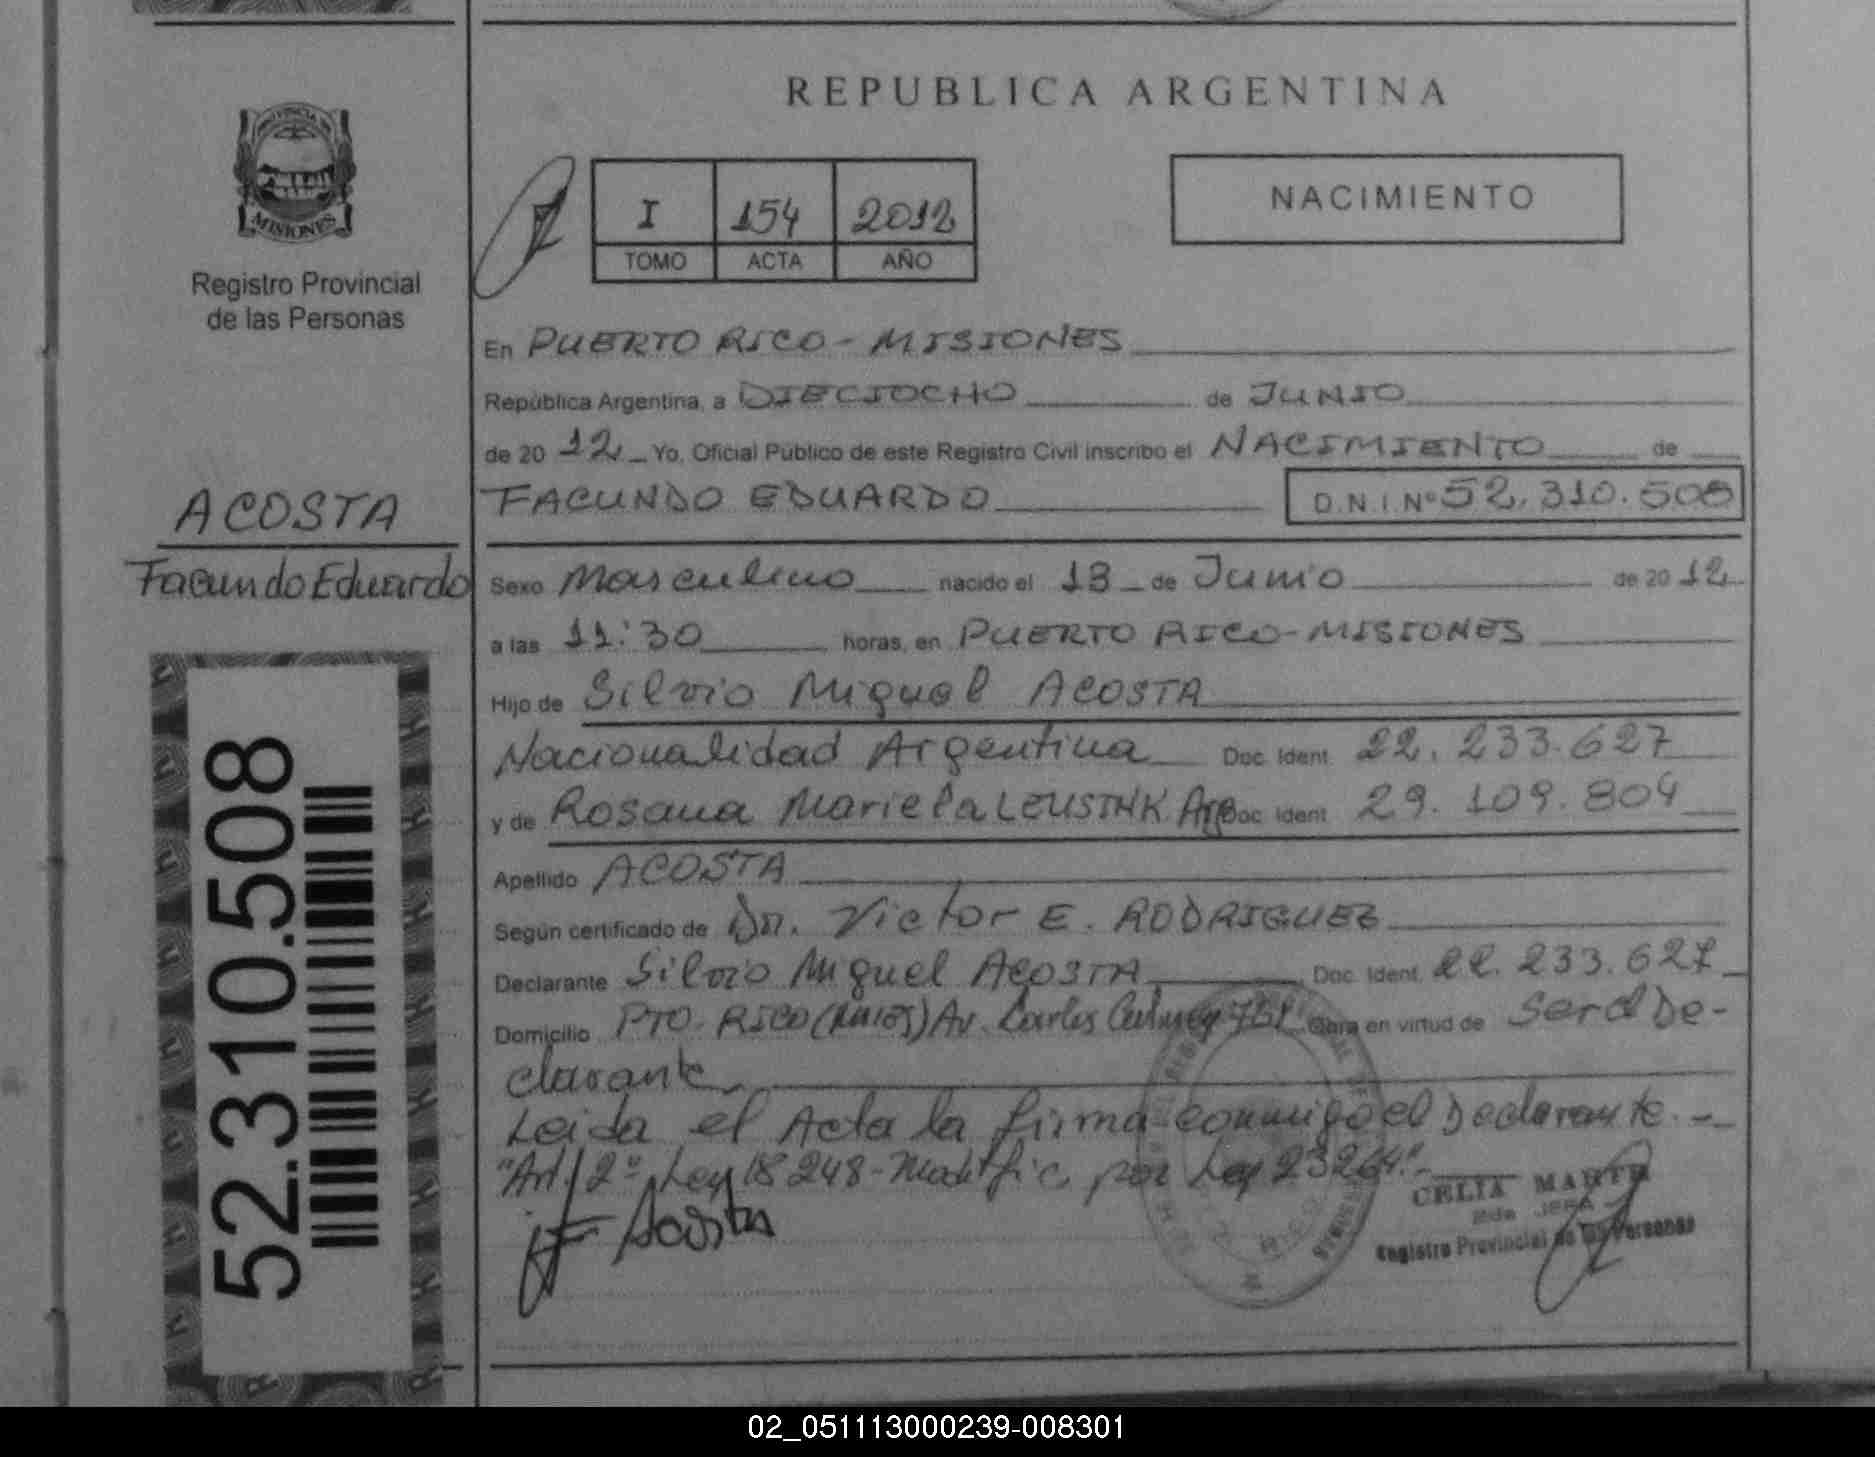 REPUBLICA ARGENTINA
PROVINCIA DE
MISIONES
Registro Provincial
de las Personas
I 154 2012
TOMO ACTA AÑO
NACIMIENTO
En PUERTO RICO - MISIONES
República Argentina, a DIECIOCHO de JUNIO
de 20 12 Yo, Oficial Público de este Registro Civil inscribo el NACIMIENTO de
FACUNDO EDUARDO D.N.I.Nº 52.310.508
ACOSTA
Facundo Eduardo
52.310.508
Sexo Masculino nacido el 13 de Junio de 20 12
a las 11:30 horas, en PUERTO RICO - MISIONES
Hijo de Silvio Miguel ACOSTA
Nacionalidad Argentina Doc. Ident. 22.233.627
y de Rosana Mariela Arg Doc. Ident. 29.109.804
Apellido ACOSTA
Según certificado de Dr. Victor E. RODRIGUEZ
Declarante Silvio Miguel ACOSTA Doc. Ident. 22.233.627
Domicilio PTO. RICO (Mnes) Av. Carlos Obra en virtud de ser el De-
clarante
Leida el Acta la firma conmigo el Declarante. -
"Art. 2º Ley 18248 - Modific por Ley 23264"
Acosta
CELIA
JEFA
Registro Provincial de las Personas
02_051113000239-008301